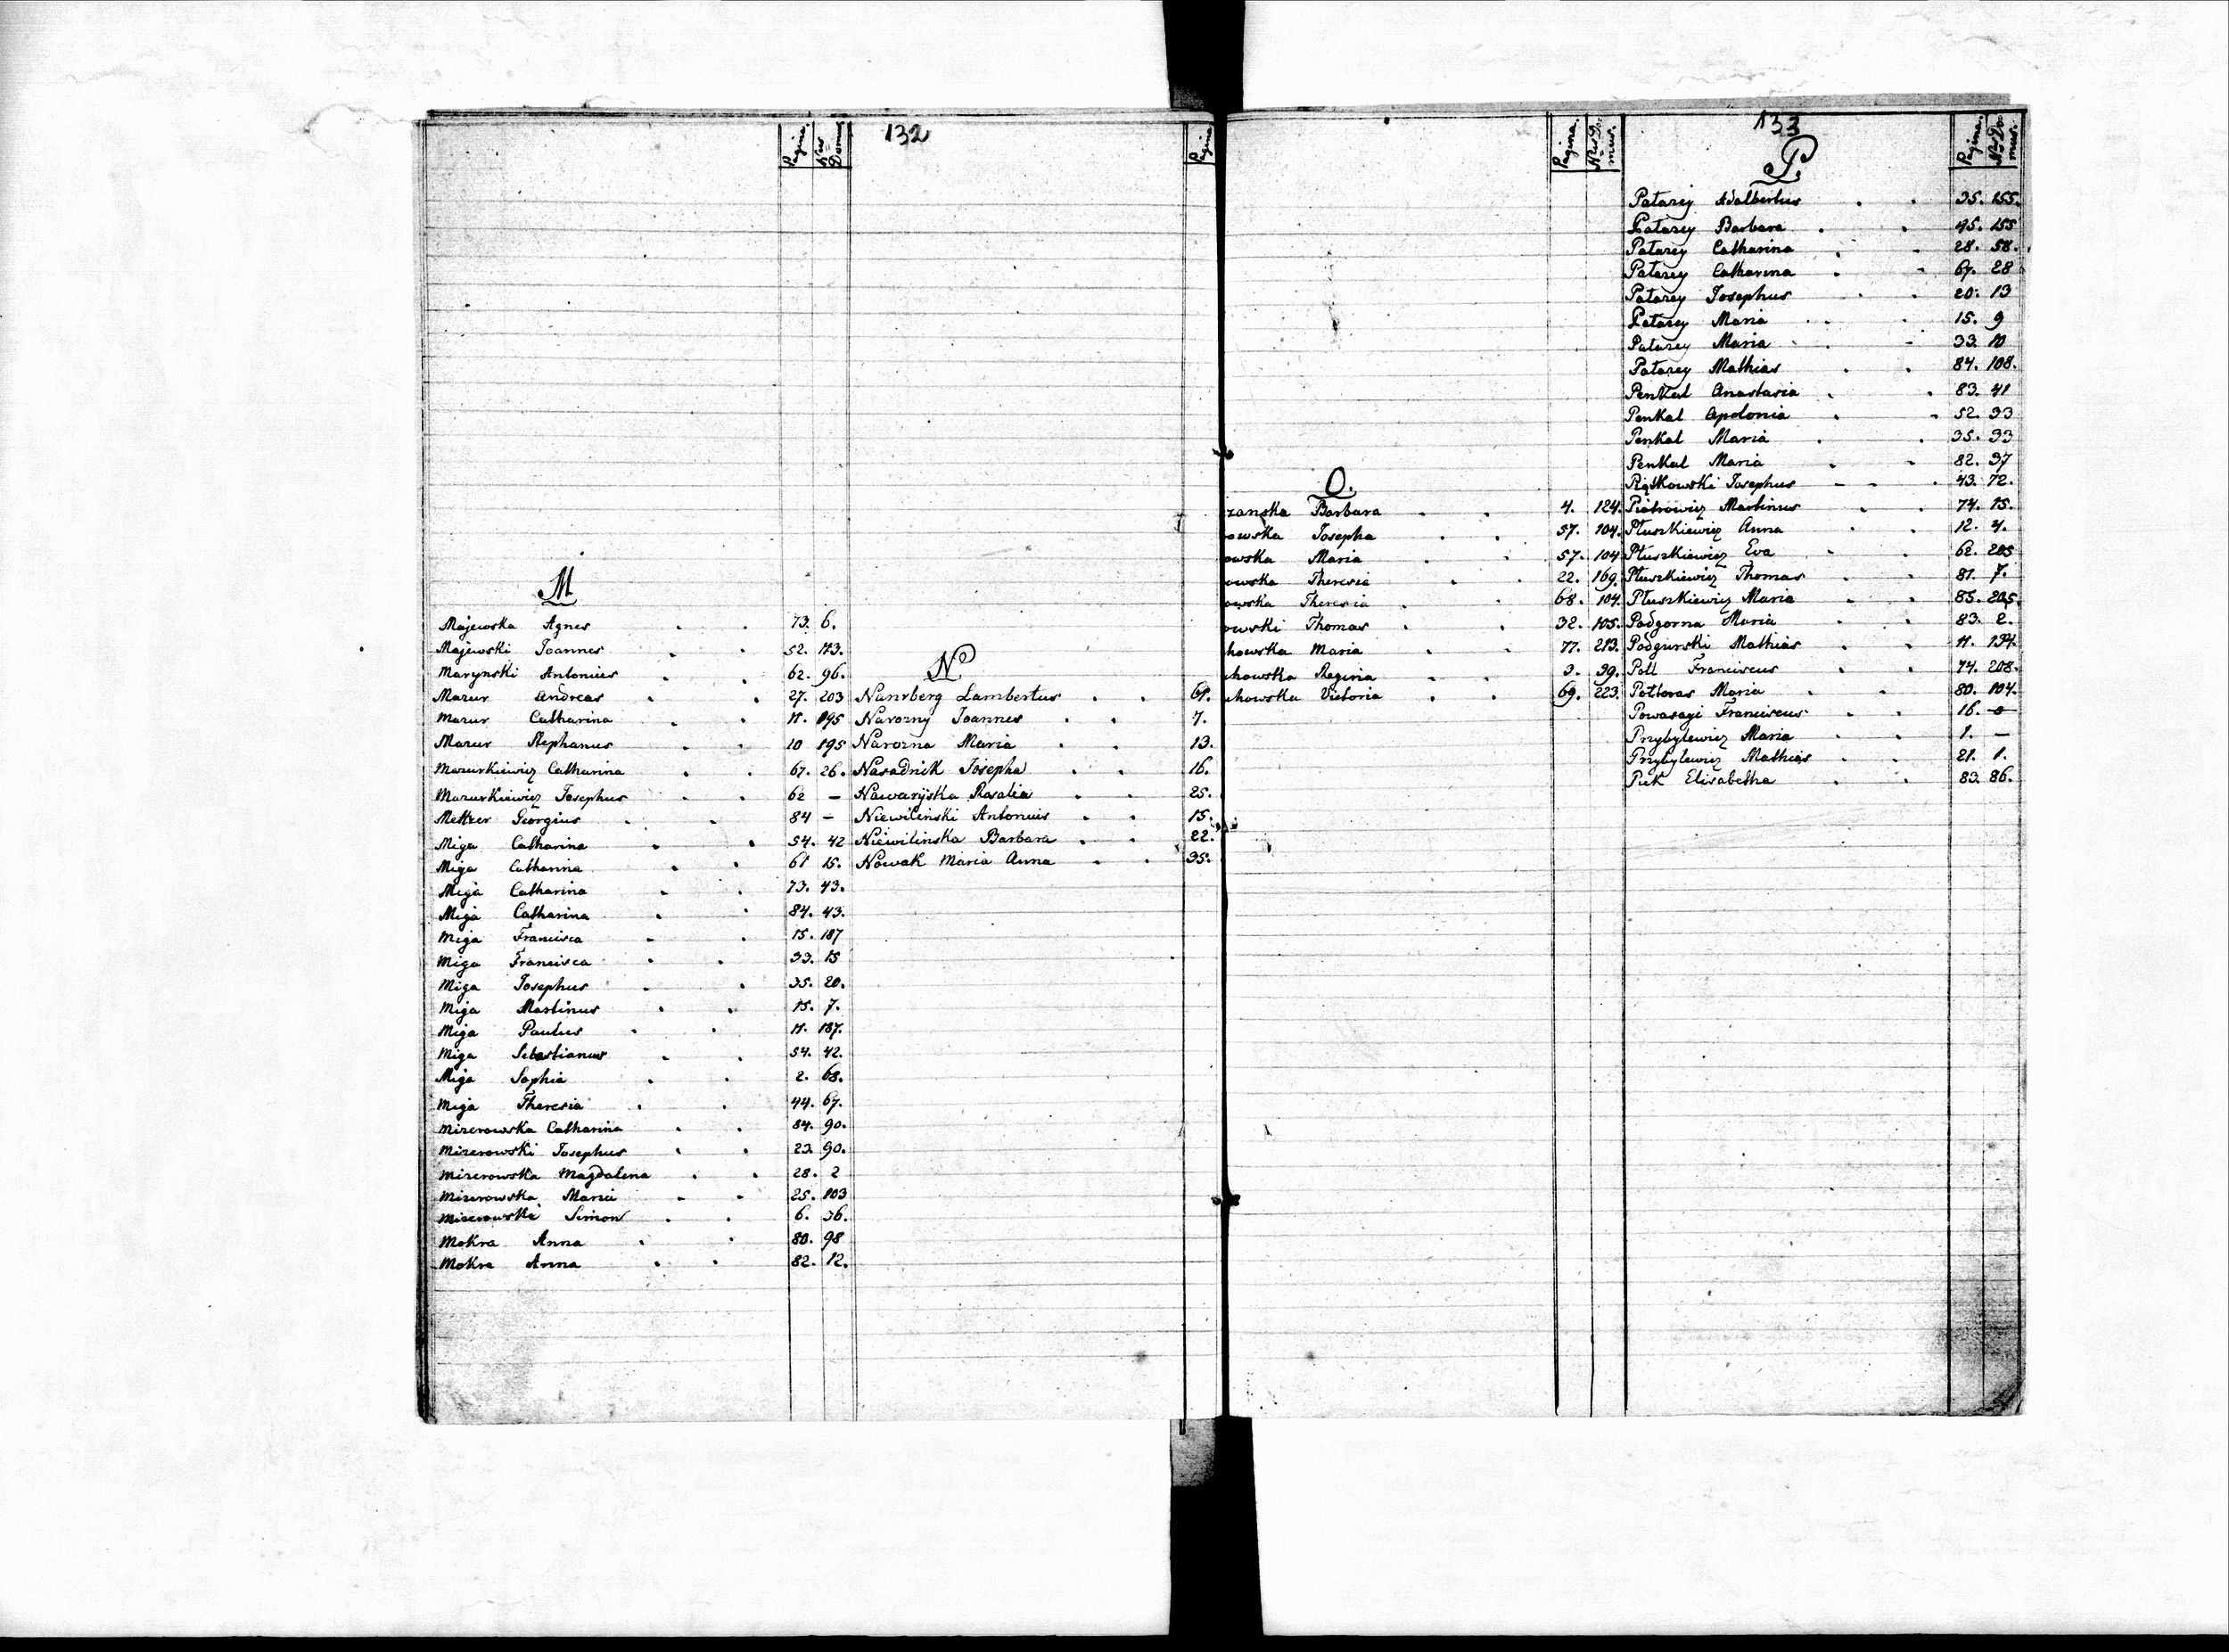 Pagina. Nrus Domus
132
Pagina
M
Majewska Agnes . . 73. 6.
Majewski Joannes . . 52. 113.
Marynski Antonius . . 62. 96.
Mazur Andreas . . 27. 203
Mazur Catharina . . 11. 195
Mazur Stephanus . . 10 195
Mazurkiewicz Catharina . . 67. 26.
Mazurkiewicz Josephus . . 62 —
Georgius . . 84 —
Miga Catharina . . 54. 42
Miga Catharina . . 61 15.
Miga Catharina . . 73. 43.
Miga Catharina . . 84. 43.
Miga Francisca . . 15. 187
Miga Francisca . . 33. 15
Miga Josephus . . 35. 20.
Miga Martinus . . 15. 7.
Miga Paulus . . 11. 187.
Miga Sebastianus . . 54. 42.
Miga Sophia . . 2. 68.
Miga Theresia . . 44. 67.
Mizerowska Catharina . . 84. 90.
Mizerowski Josephus . . 23. 90.
Mizerowska Magdalena . . 28. 2
Mizerowska Maria . . 25. 103
Mizerowski Simon . . 6. 36.
Mokra Anna . . 80. 98
Mokra Anna . . 82. 12.
N
Nanrberg Lambertus . . 61.
Narozny Joannes . . 7.
Narozna Maria . . 13.
Nasadnik Josepha . . 16.
Nawaryska Rosalia . . 25.
Niewilinski Antonius . . 15.
Niewilinska Barbara . . 22.
Nowak Maria Anna . . 35.
Pagina. Nrus Domus.
O.
zanska Barbara . . 4. 124.
owska Josepha . . 57. 104.
owska Maria . . 57. 104
owska Theresia . . 22. 169.
owska Theresia . . 68. 104.
owski Thomas . . 32. 105.
howska Maria . . 77. 213.
chowska Regina . . 3. 39.
chowska Victoria . . 69. 223.
133
Pagina. Nrus Domus.
P.
Patarey Adalbertus . . 35. 155.
Patarey Barbara . . 45. 155
Patarey Catharina . . 28. 58.
Patarey Catharina . . 67. 28
Patarey Josephus . . 20. 13
Patarey Maria . . 15. 9
Patarey Maria . . 33. 10
Patarey Mathias . . 84. 108.
Penkal Anastasia . . 83. 41
Penkal Apolonia . . 52. 33
Penkal Maria . . 35. 33
Penkal Maria . . 82. 37
Piątkowski Josephus . . 43. 72.
Piotrowicz Martinus . . 74. 15.
Płuszkiewicz Anna . . 12. 4.
Płuszkiewicz Eva . . 62. 205
Płuszkiewicz Thomas . . 81. 7.
Płuszkiewicz Maria . . 85. 205.
Podgorna Maria . . 83. 2.
Podgurski Mathias . . 11. 134.
Poll Franciscus . . 74. 208.
Połtoras Maria . . 80. 104.
Franciscus . . 16. —
Przybylewicz Maria . . 1. —
Przybylewicz Mathias . . 21. 1.
Puk Elisabetha . . 83. 86.